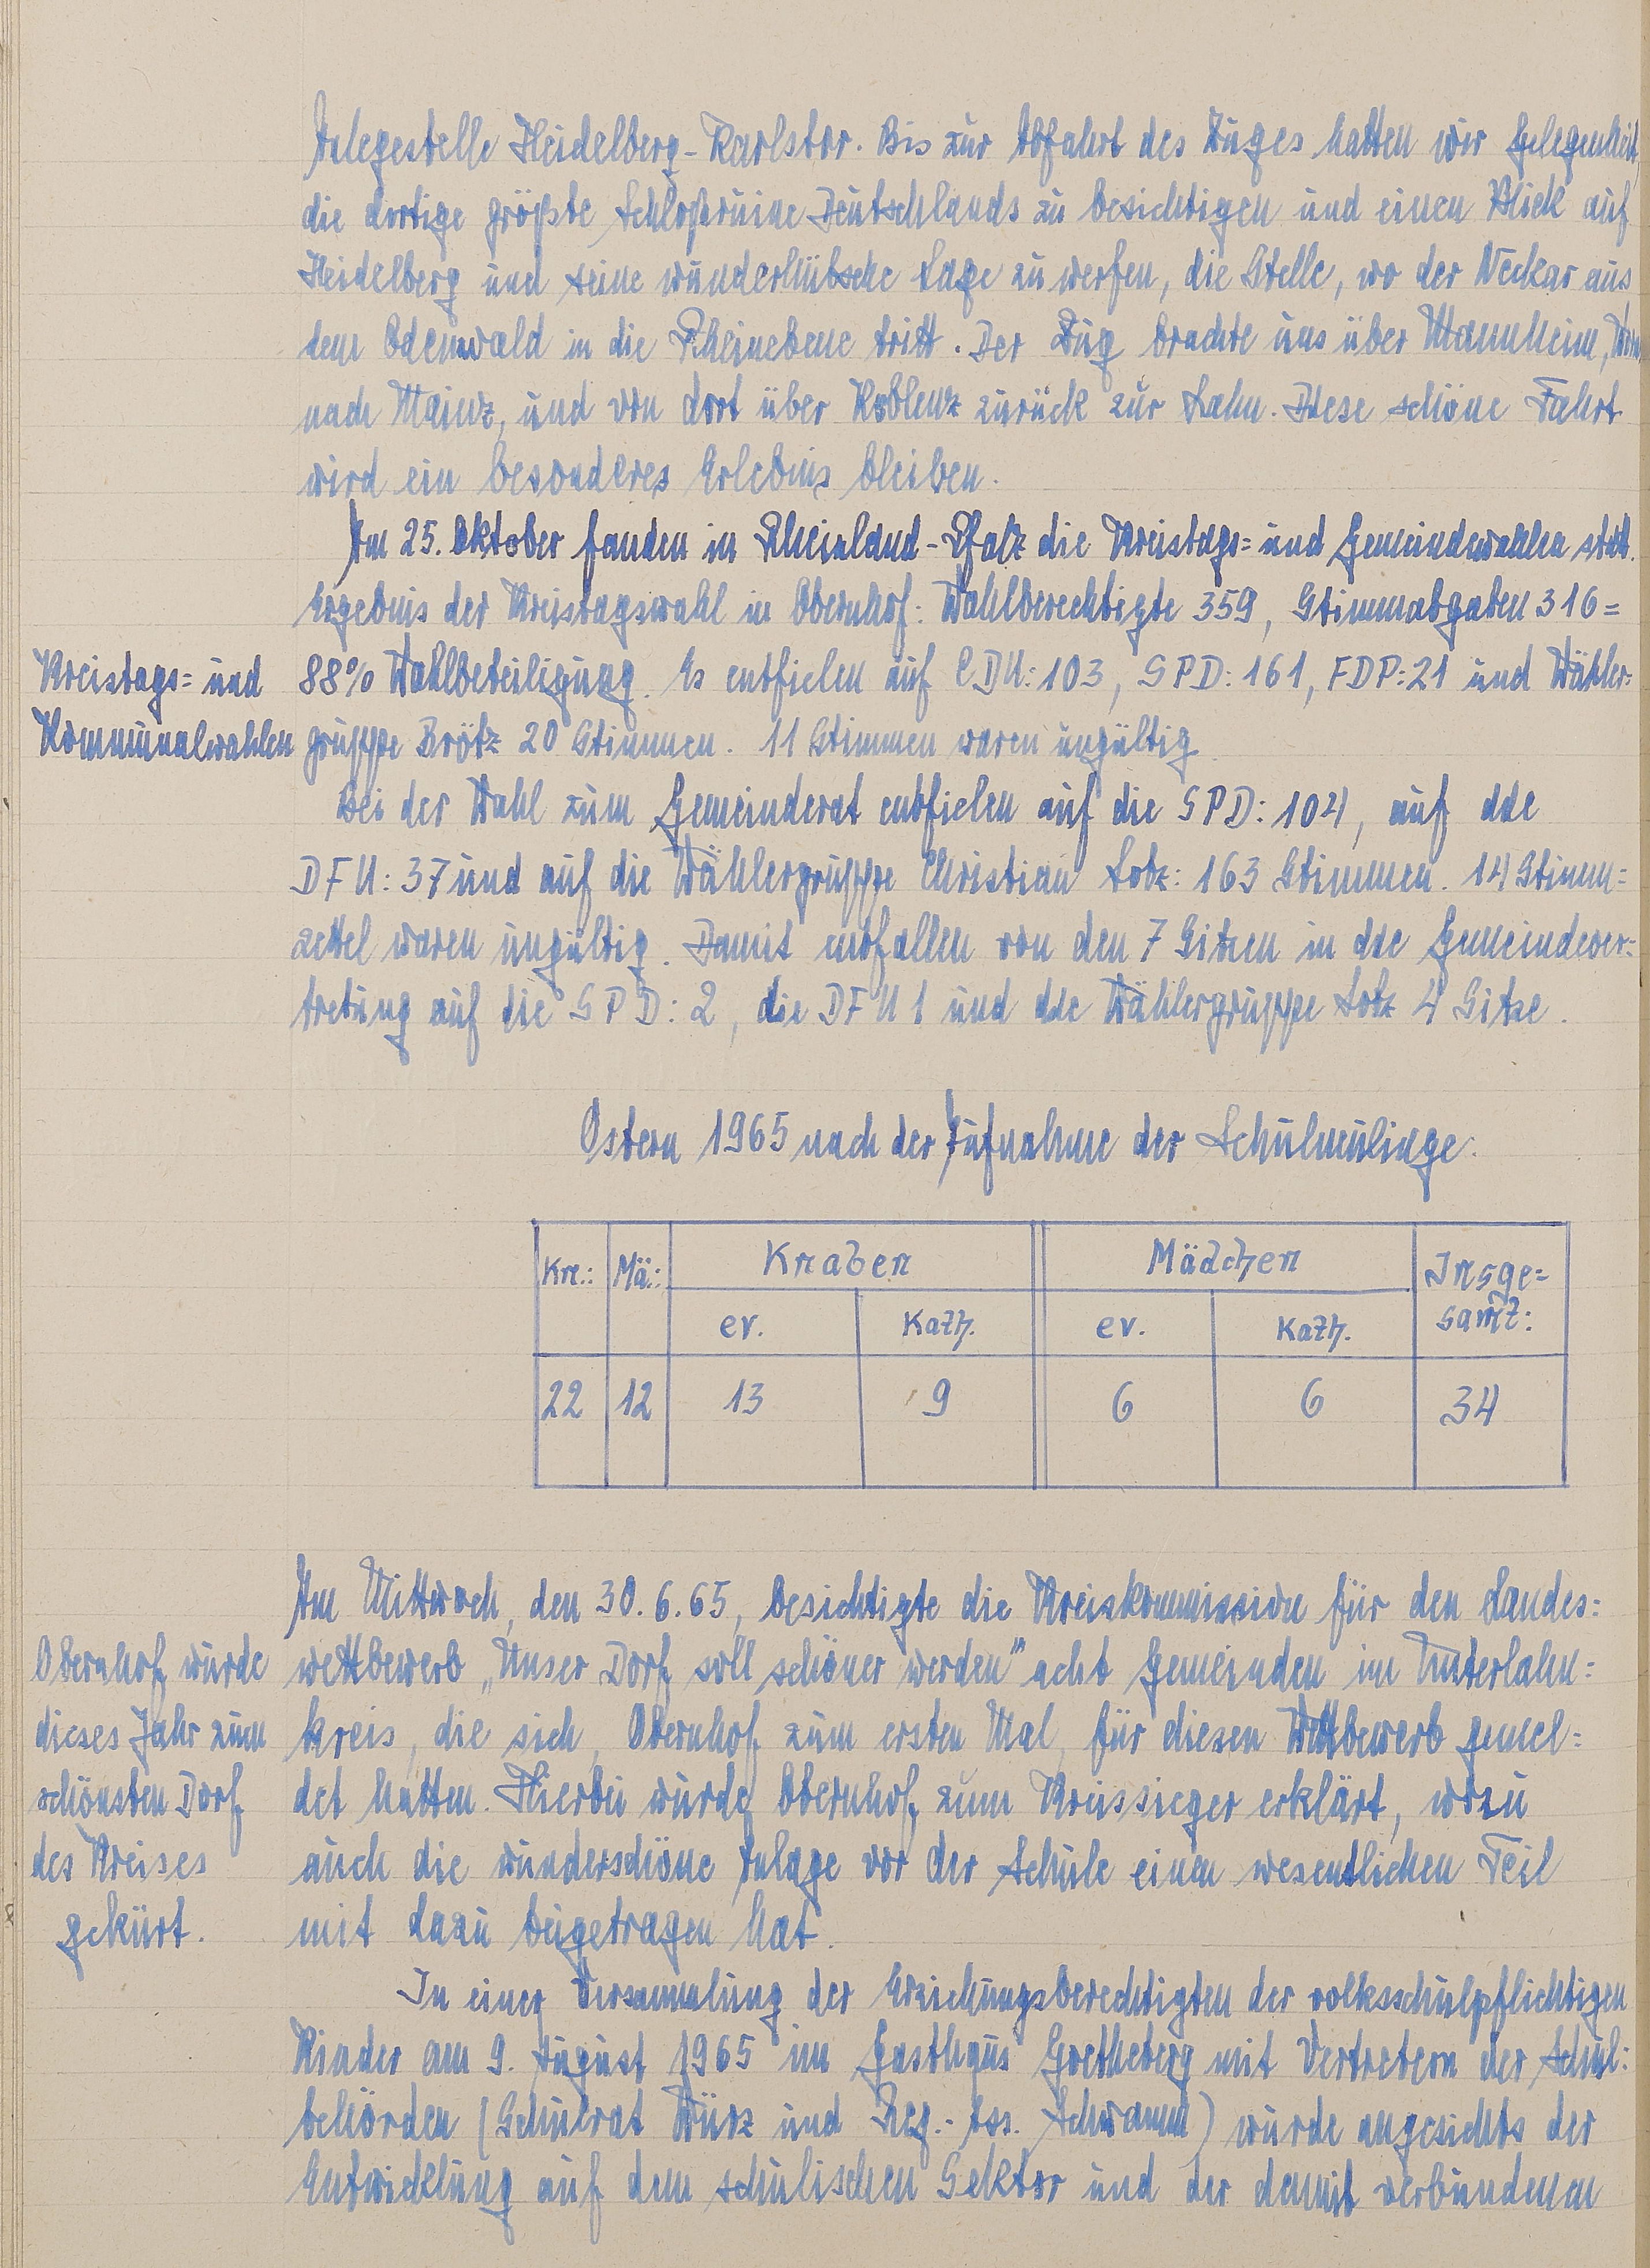 Anlegestelle Heidelberg-Karlstor. Bis zur Abfahrt des Zuges hatten wir Gelegenheit,
die dortige größte Schloßruine Deutschlands zu besichtigen und einen Blick auf
Heidelberg und seine wunderhübsche Lage zu werfen, die Stelle, wo der Neckar aus
dem Odenwald in die Rheinebene tritt. Der Zug brachte uns über Mannheim,
nach Mainz, und von dort über Koblenz zurück zur Lahn. Diese schöne Fahrt
wird ein besonderes Erlebnis bleiben.
Am 25. Oktober fanden in Rheinland-Pfalz die Kreistags= und Gemeindewahlen statt.
Ergebnis der Kreistagswahl in Obernhof: Wahlberechtigte 359, Stimmabgaben 316=
Kreistags= und
Kommunalwahlen
88% Wahlbeteiligung. Es entfielen auf CDU: 103, SPD: 161, FDP: 21 und Wähler=
gruppe Brötz 20 Stimmen. 11 Stimmen waren ungültig
Bei der Wahl zum Gemeinderat entfielen auf die SPD: 104, auf die
DFU: 37 und auf die Wählergruppe Christian Lotz: 163 Stimmen. 14 Stimm=
zettel waren ungültig. Damit entfallen von den 7 Sitzen in die Gemeindever=
tretung auf die SPD: 2, die DFU 1 und die Wählergruppe Lotz 4 Sitze.
Ostern 1965 nach der Aufnahme der Schulneulinge:
Kn.: Mä.: Knaben Mädchen Insge=
samt:
ev. Kath. ev. Kath.
22 12 13 9 6 6 34
Am Mittwoch, den 30.6.65, besichtigte die Kreiskommission für den Landes=
Obernhof wurde
dieses Jahr zum
schönsten Dorf
des Kreises
gekürt.
wettbewerb „Unser Dorf soll schöner werden" acht Gemeinden im Unterlahn=
kreis, die sich, Obernhof zum ersten Mal, für diesen Wettbewerb gemel=
det hatten. Hierbei wurde Obernhof zum Kreissieger erklärt, wozu
auch die wunderschöne Anlage vor der Schule einen wesentlichen Teil
mit dazu beigetragen hat.
In einer Versammlung der Erziehungsberechtigten der volksschulpflichtigen
Kinder am 9. August 1965 im Gasthaus Goetheberg mit Vertretern der Schul=
behörden (Schulrat Würz und Reg.-Ass. Schwamm) wurde angesichts der
Entwicklung auf dem schulischen Sektor und der damit verbundenen